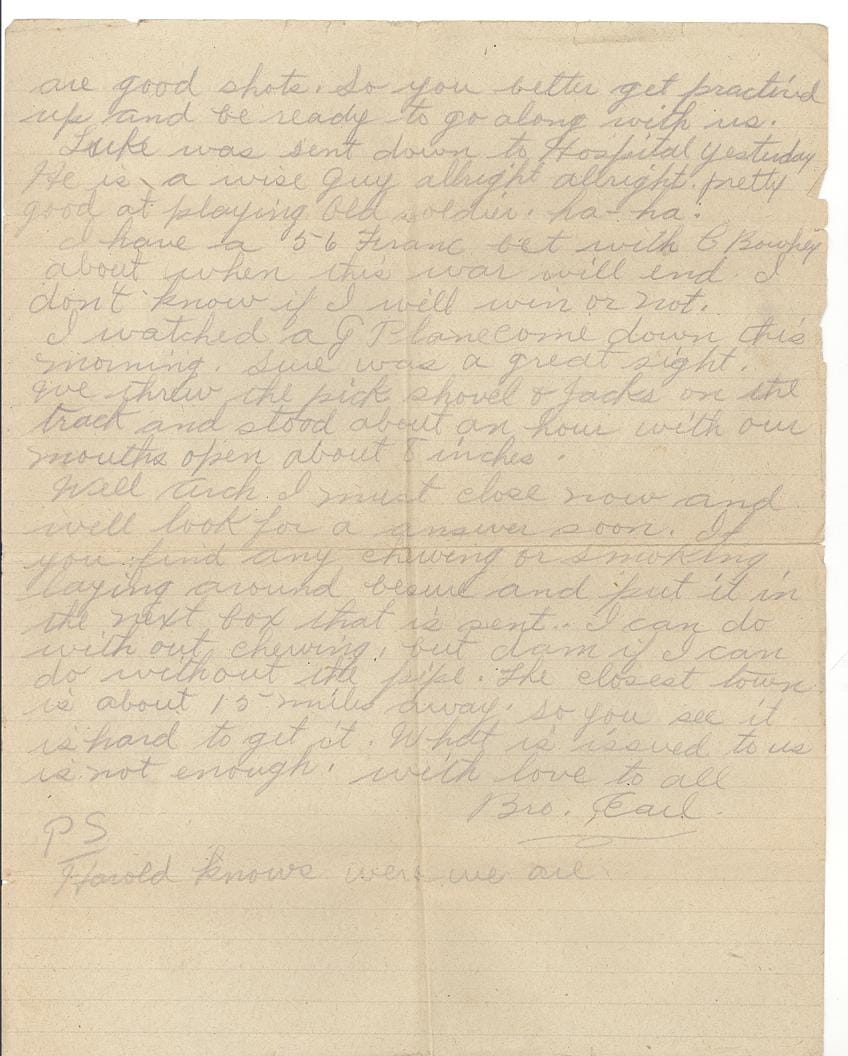 are good shots. So you better get practiced
up and be ready to go along with us.
Luke was sent down to Hospital yesterday
He is a wise guy allright allright. pretty
good at playing Old soldier. ha-ha.
I have a 56 Franc bet with C
about when this war will end. I
don't know if I will win or not.
I watched a G Plane come down this
morning. Sure was a great sight.
We threw the pick shovel & Jacks on the
track and stood about an hour with our
mouths open about 8 inches.
Well Arch I must close now and
will look for a answer soon. If
you find any chewing or smoking
laying around besure and put it in
the next box that is sent. I can do
with out chewing, but dam if I can
do without the pipe. The closest town
is about 15 miles away. So you see it
is hard to get it. What is issued to us
is not enough. with love to all
Bro. Earl.
PS
Harold knows were we are